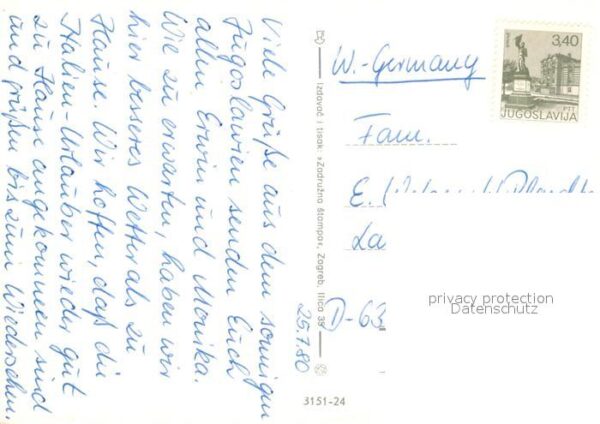 Viele Grüße aus dem sonnigen
Jugoslawien senden Euch
allen Erwin und Monika.
Wie zu erwarten, haben wir
hier besseres Wetter als zu
Hause. Wir hoffen, daß die
Italien-Urlauber wieder gut
zu Hause angekommen sind
und grüßen bis zum Wiedersehen.
25.7.80
Izdavač i tisak »Zadružna štampa«, Zagreb, Ilica 35
3151-24
W.-Germany
Fam.
E.
La
D-63
3,40
PTT
JUGOSLAVIJA
privacy protection
Datenschutz